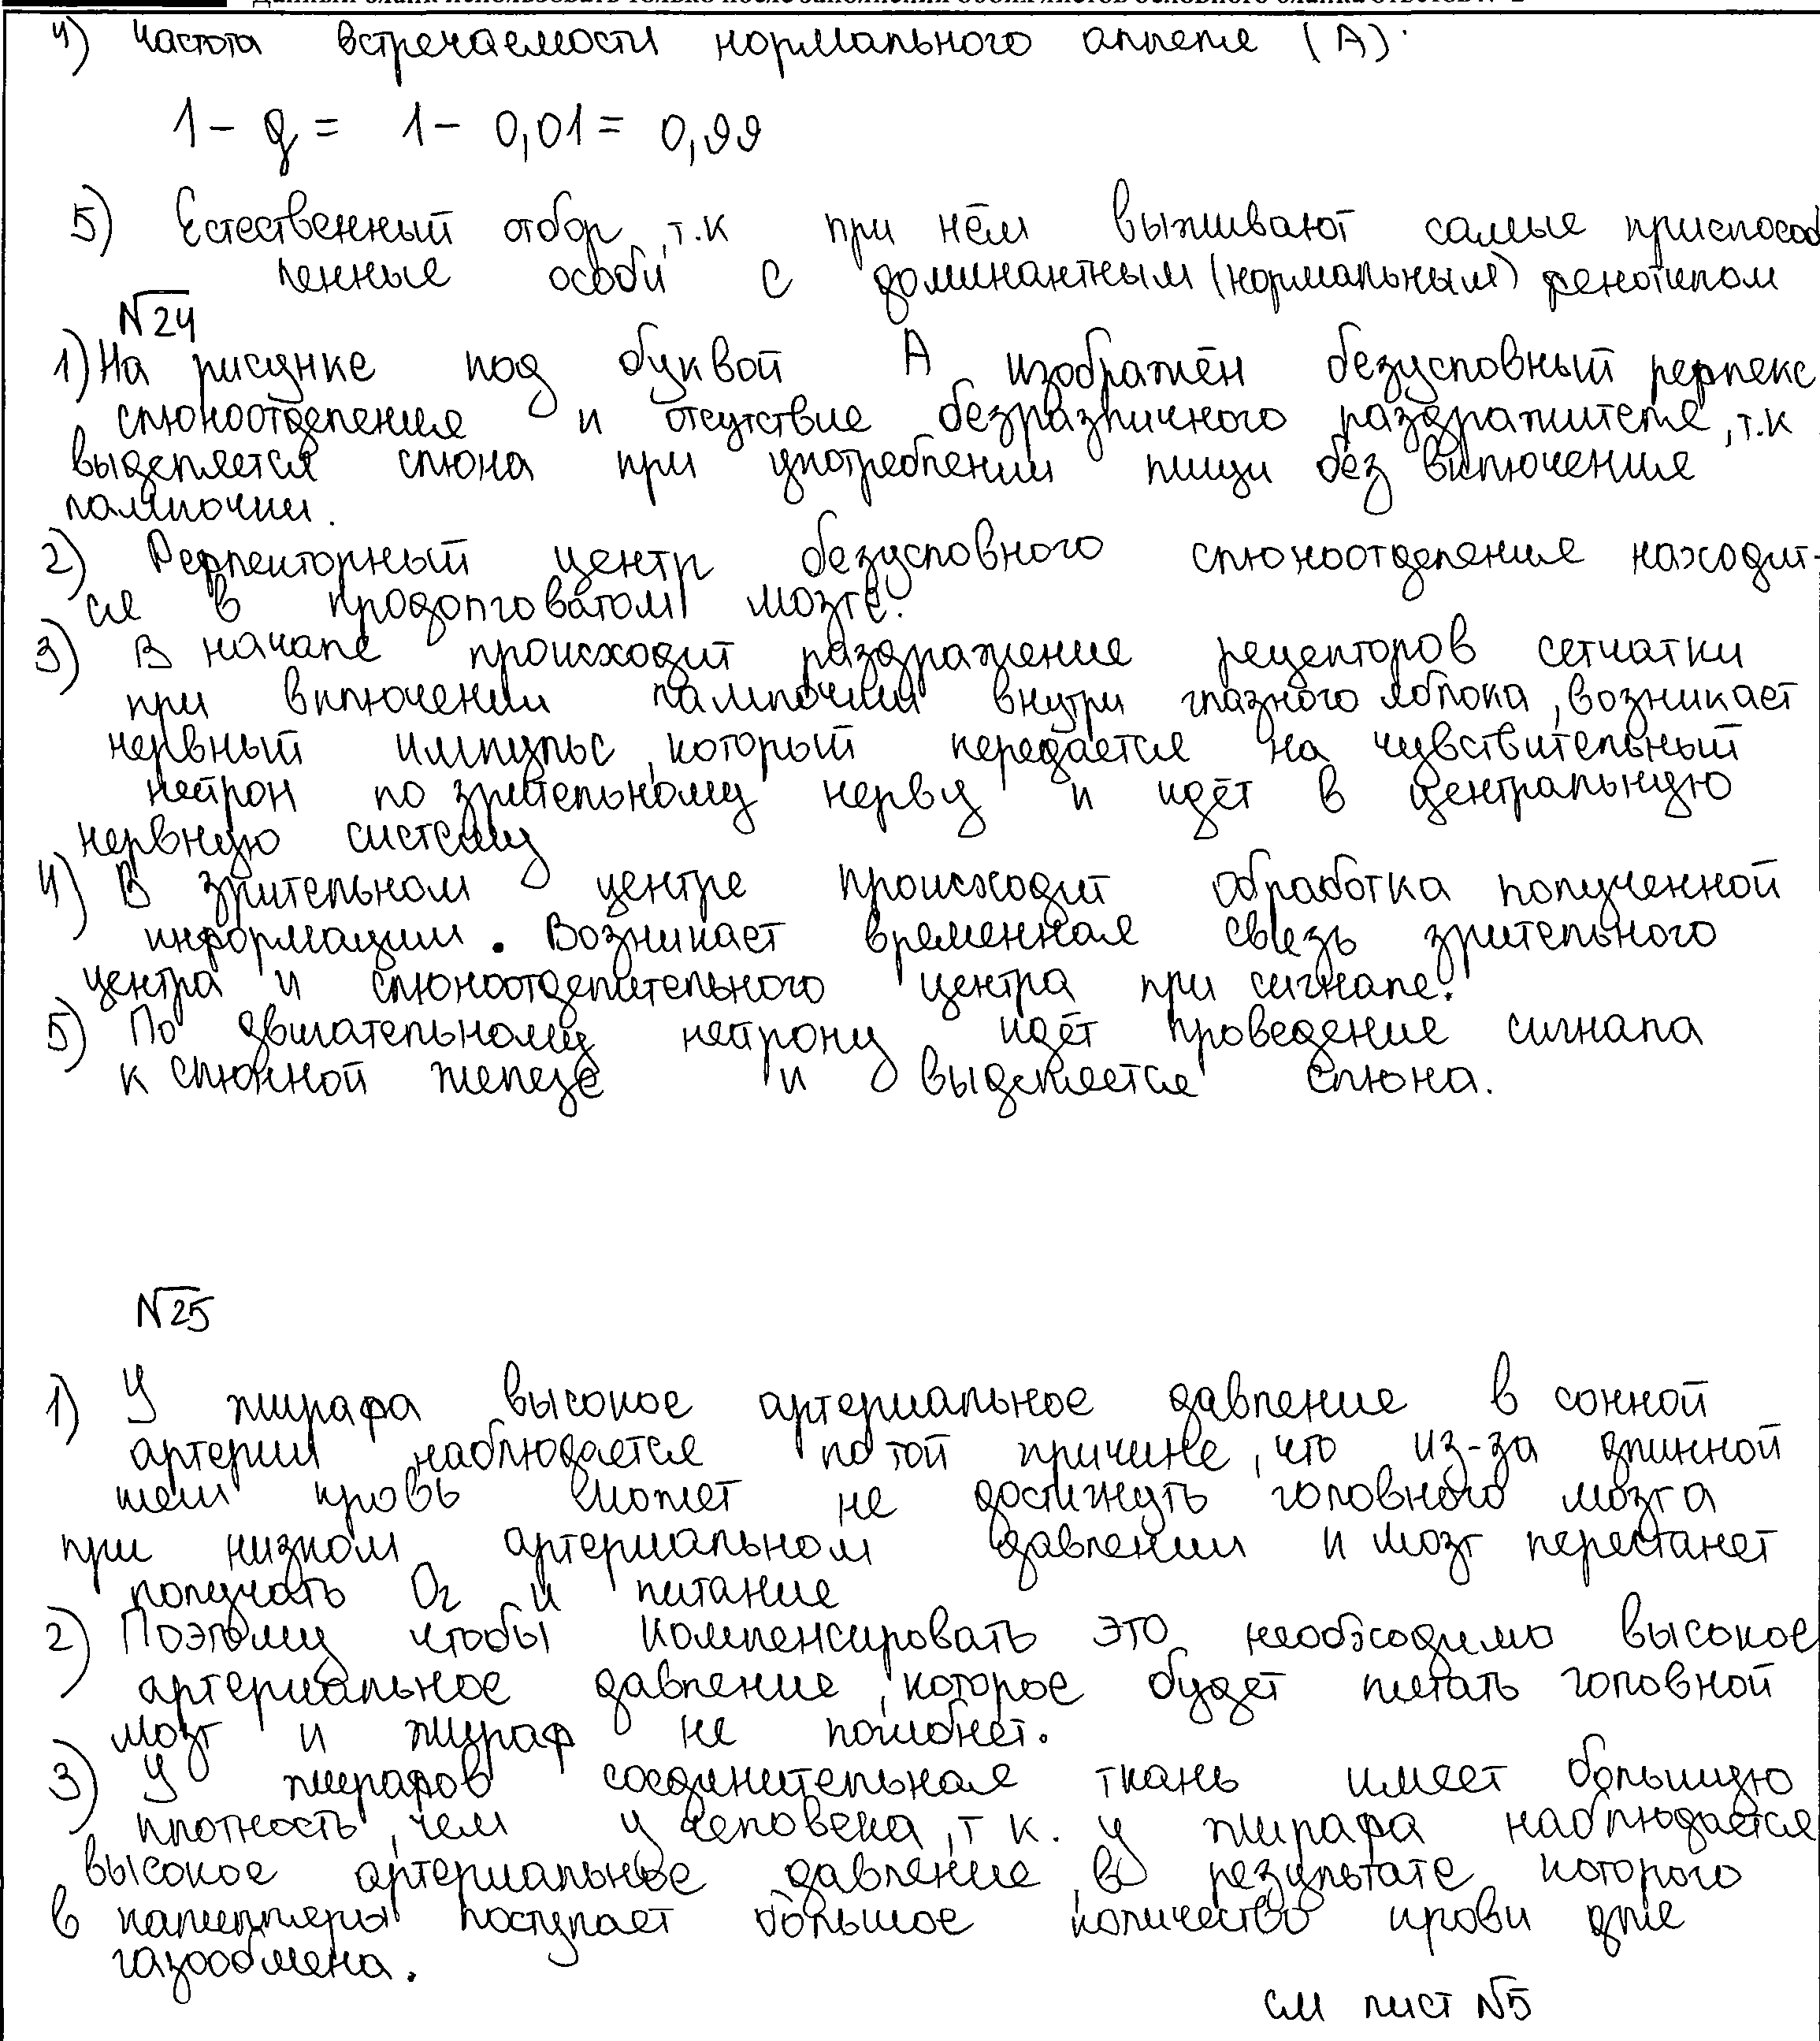 4) Частота встречаемости нормального аллеля (А).
1 - q = 1 - 0,01 = 0,99
5) Естественный отбор, т.к при нём выживают самые приспособ
ленные особи с доминантным (нормальным) фенотипом
№24
1) На рисунке под буквой А изображён безусловный рефлекс
слюноотделения и отсутствие безразличного раздражителя, т.к
выделяется слюна при употреблении пищи без включения
лампочки.
2) Рефлекторный центр безусловного слюноотделения находит-
ся в продолговатом мозге.
3) В начале происходит раздражение рецепторов сетчатки
при включении лампочки внутри глазного яблока, возникает
нервный импульс, который передаётся на чувствительный
нейрон по зрительному нерву и идёт в центральную
нервную систему
4) В зрительном центре происходит обработка полученной
информации. Возникает временная связь зрительного
центра и слюноотделительного центра при сигнале.
5) По двигательному нейрону идёт проведение сигнала
к слюнной железе и выделяется слюна.
№25
1) У жирафа высокое артериальное давление в сонной
артерии наблюдается по той причине, что из-за длинной
шеи кровь может не достигнуть головного мозга
при низком артериальном давлении и мозг перестанет
получать O2 и питание
2) Поэтому чтобы компенсировать это необходимо высокое
артериальное давление, которое будет питать головной
мозг и жираф не погибнет.
3) У жирафов соединительная ткань имеет большую
плотность, чем у человека, т к. у жирафа наблюдается
высокое артериальное давление, в результате которого
в капилляры поступает большое количество крови для
газообмена.
см лист №5